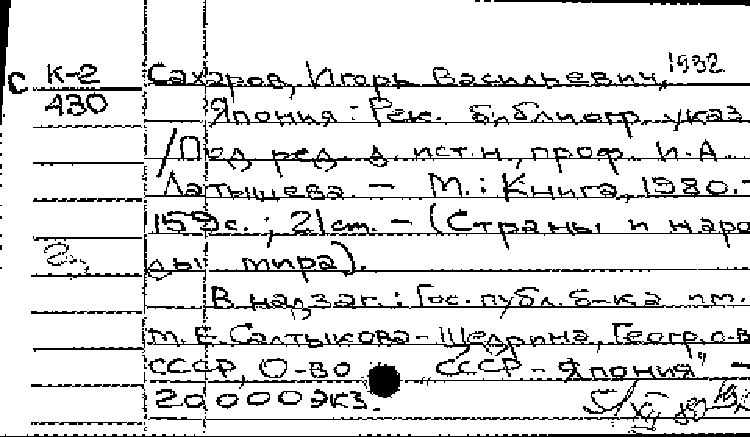 С К-2 Сахаров, Игорь Васильевич, 1932
430 Япония : Рек. библиогр. указ
/Под ред. д. ист. н., проф. И.А.
Латышева. – М. : Книга, 1980. –
159 с. ; 21 см. – (Страны и наро
ды мира).
В надзаг. : Гос. публ. б-ка им.
М.Е. Салтыкова-Щедрина, Геогр. о-в
СССР, О-во СССР – Япония" –
20000 экз.